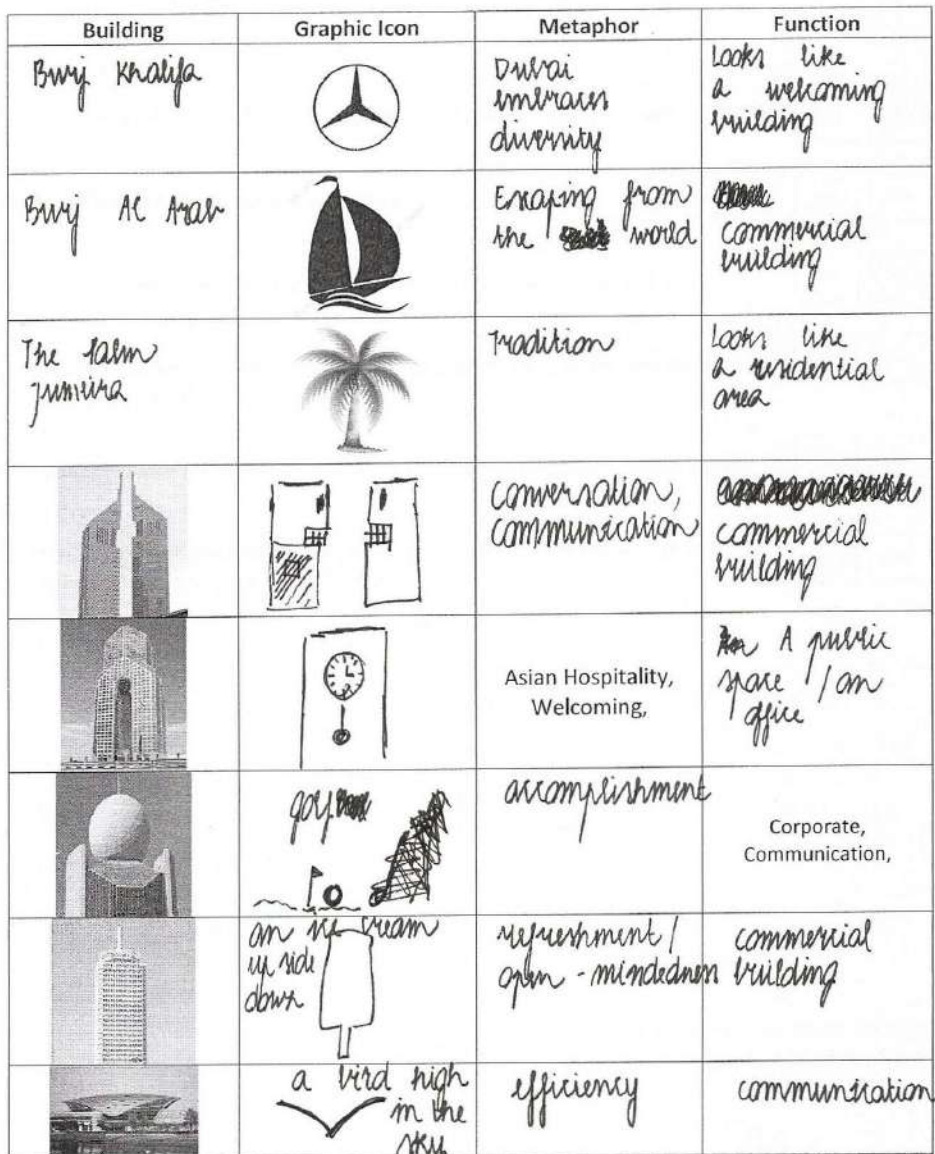 Building Graphic Icon Metaphor Function
Burj Khalifa
Dubai
embraces
diversity
Looks like
a welcoming
building
Burj Al Arab
Escaping from
the world
commercial
building
The Palm
Jumeira
Tradition
Looks like
a residential
area
conversation,
communication
commercial
building
Asian Hospitality,
Welcoming,
A public
space / an
office
golf
accomplishment
Corporate,
Communication,
an ice cream
up side
down
refreshment /
open - mindedness
commercial
building
a bird high
in the
sky
efficiency
communication